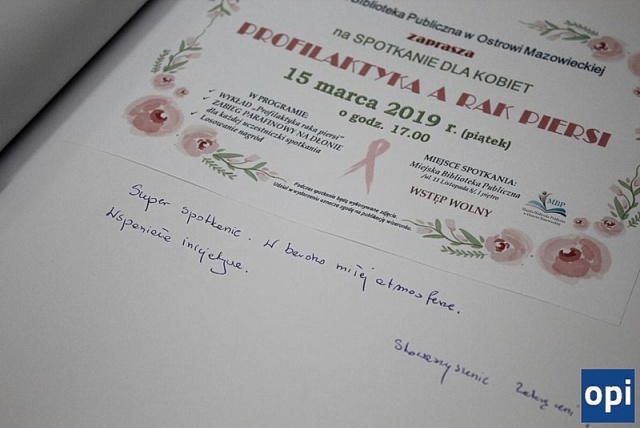 Biblioteka Publiczna w Ostrowi Mazowieckiej
zaprasza
na SPOTKANIE DLA KOBIET
PROFILAKTYKA A RAK PIERSI
15 marca 2019 r. (piątek)
o godz. 17.00
W PROGRAMIE:
✓ WYKŁAD „Profilaktyka raka piersi"
✓ ZABIEG PARAFINOWY NA DŁONIE
dla każdej uczestniczki spotkania
✓ Losowanie nagród
MIEJSCE SPOTKANIA:
Miejska Biblioteka Publiczna
/ul. 11 Listopada 8/, I piętro
WSTĘP WOLNY
MBP
Podczas spotkania będą wykonywane zdjęcia.
Udział w wydarzeniu oznacza zgodę na publikację wizerunku.
Super spotkanie. W bardzo miłej atmosferze.
Wspaniała inicjatywa.
Stowarzyszenie
opi